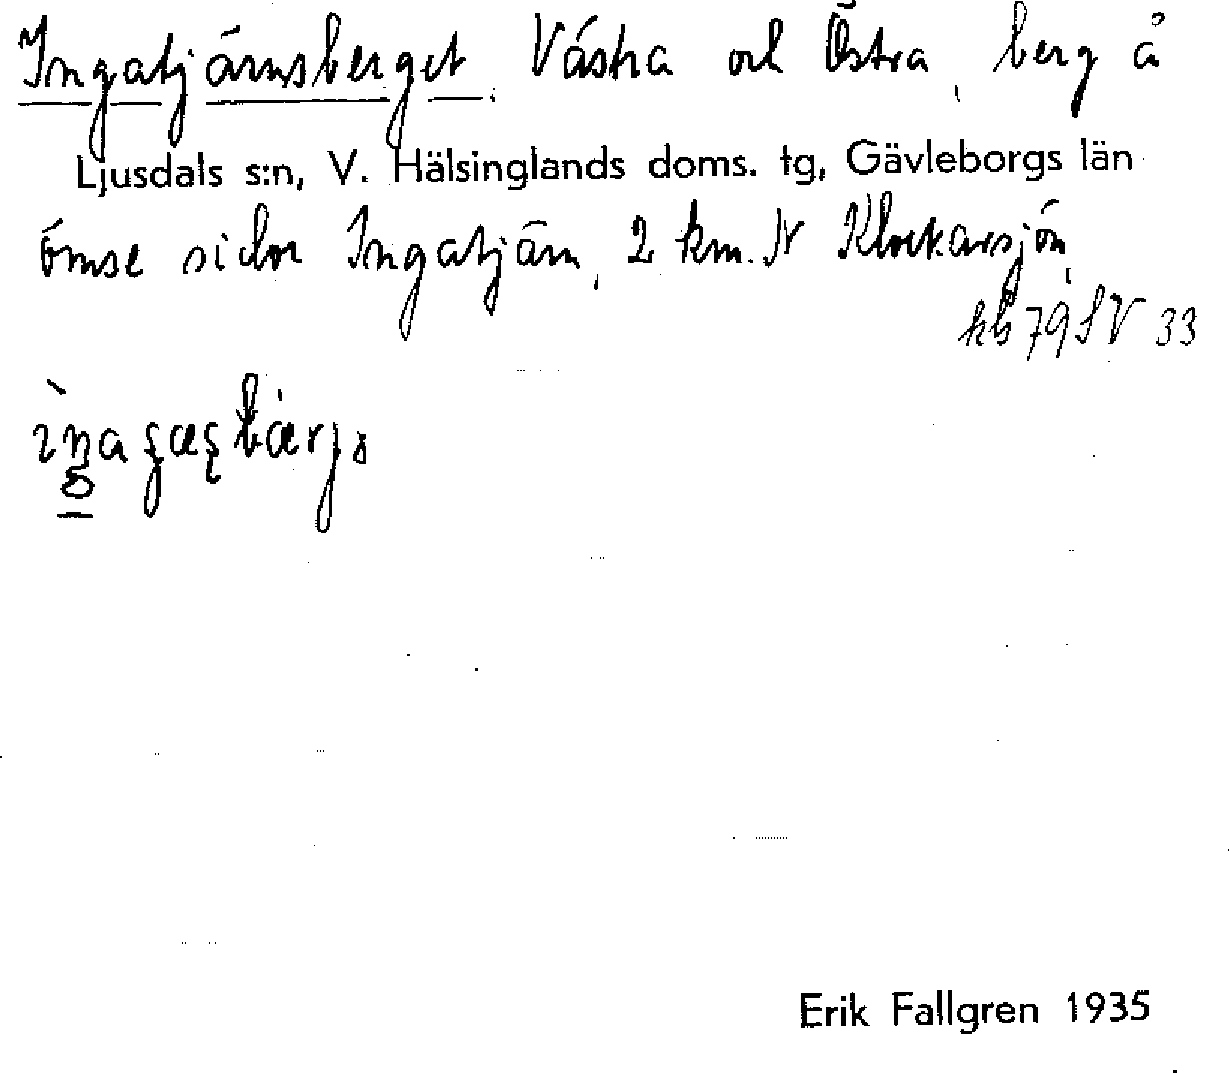 Ingatjärnsberget, Västra och Östra, berg å
Ljusdals s:n, V. Hälsinglands doms. tg, Gävleborgs län
ömse sidor Ingatjärn, 2 km. N Klockarsjön,
kb 79 SV 33
Erik Fallgren 1935